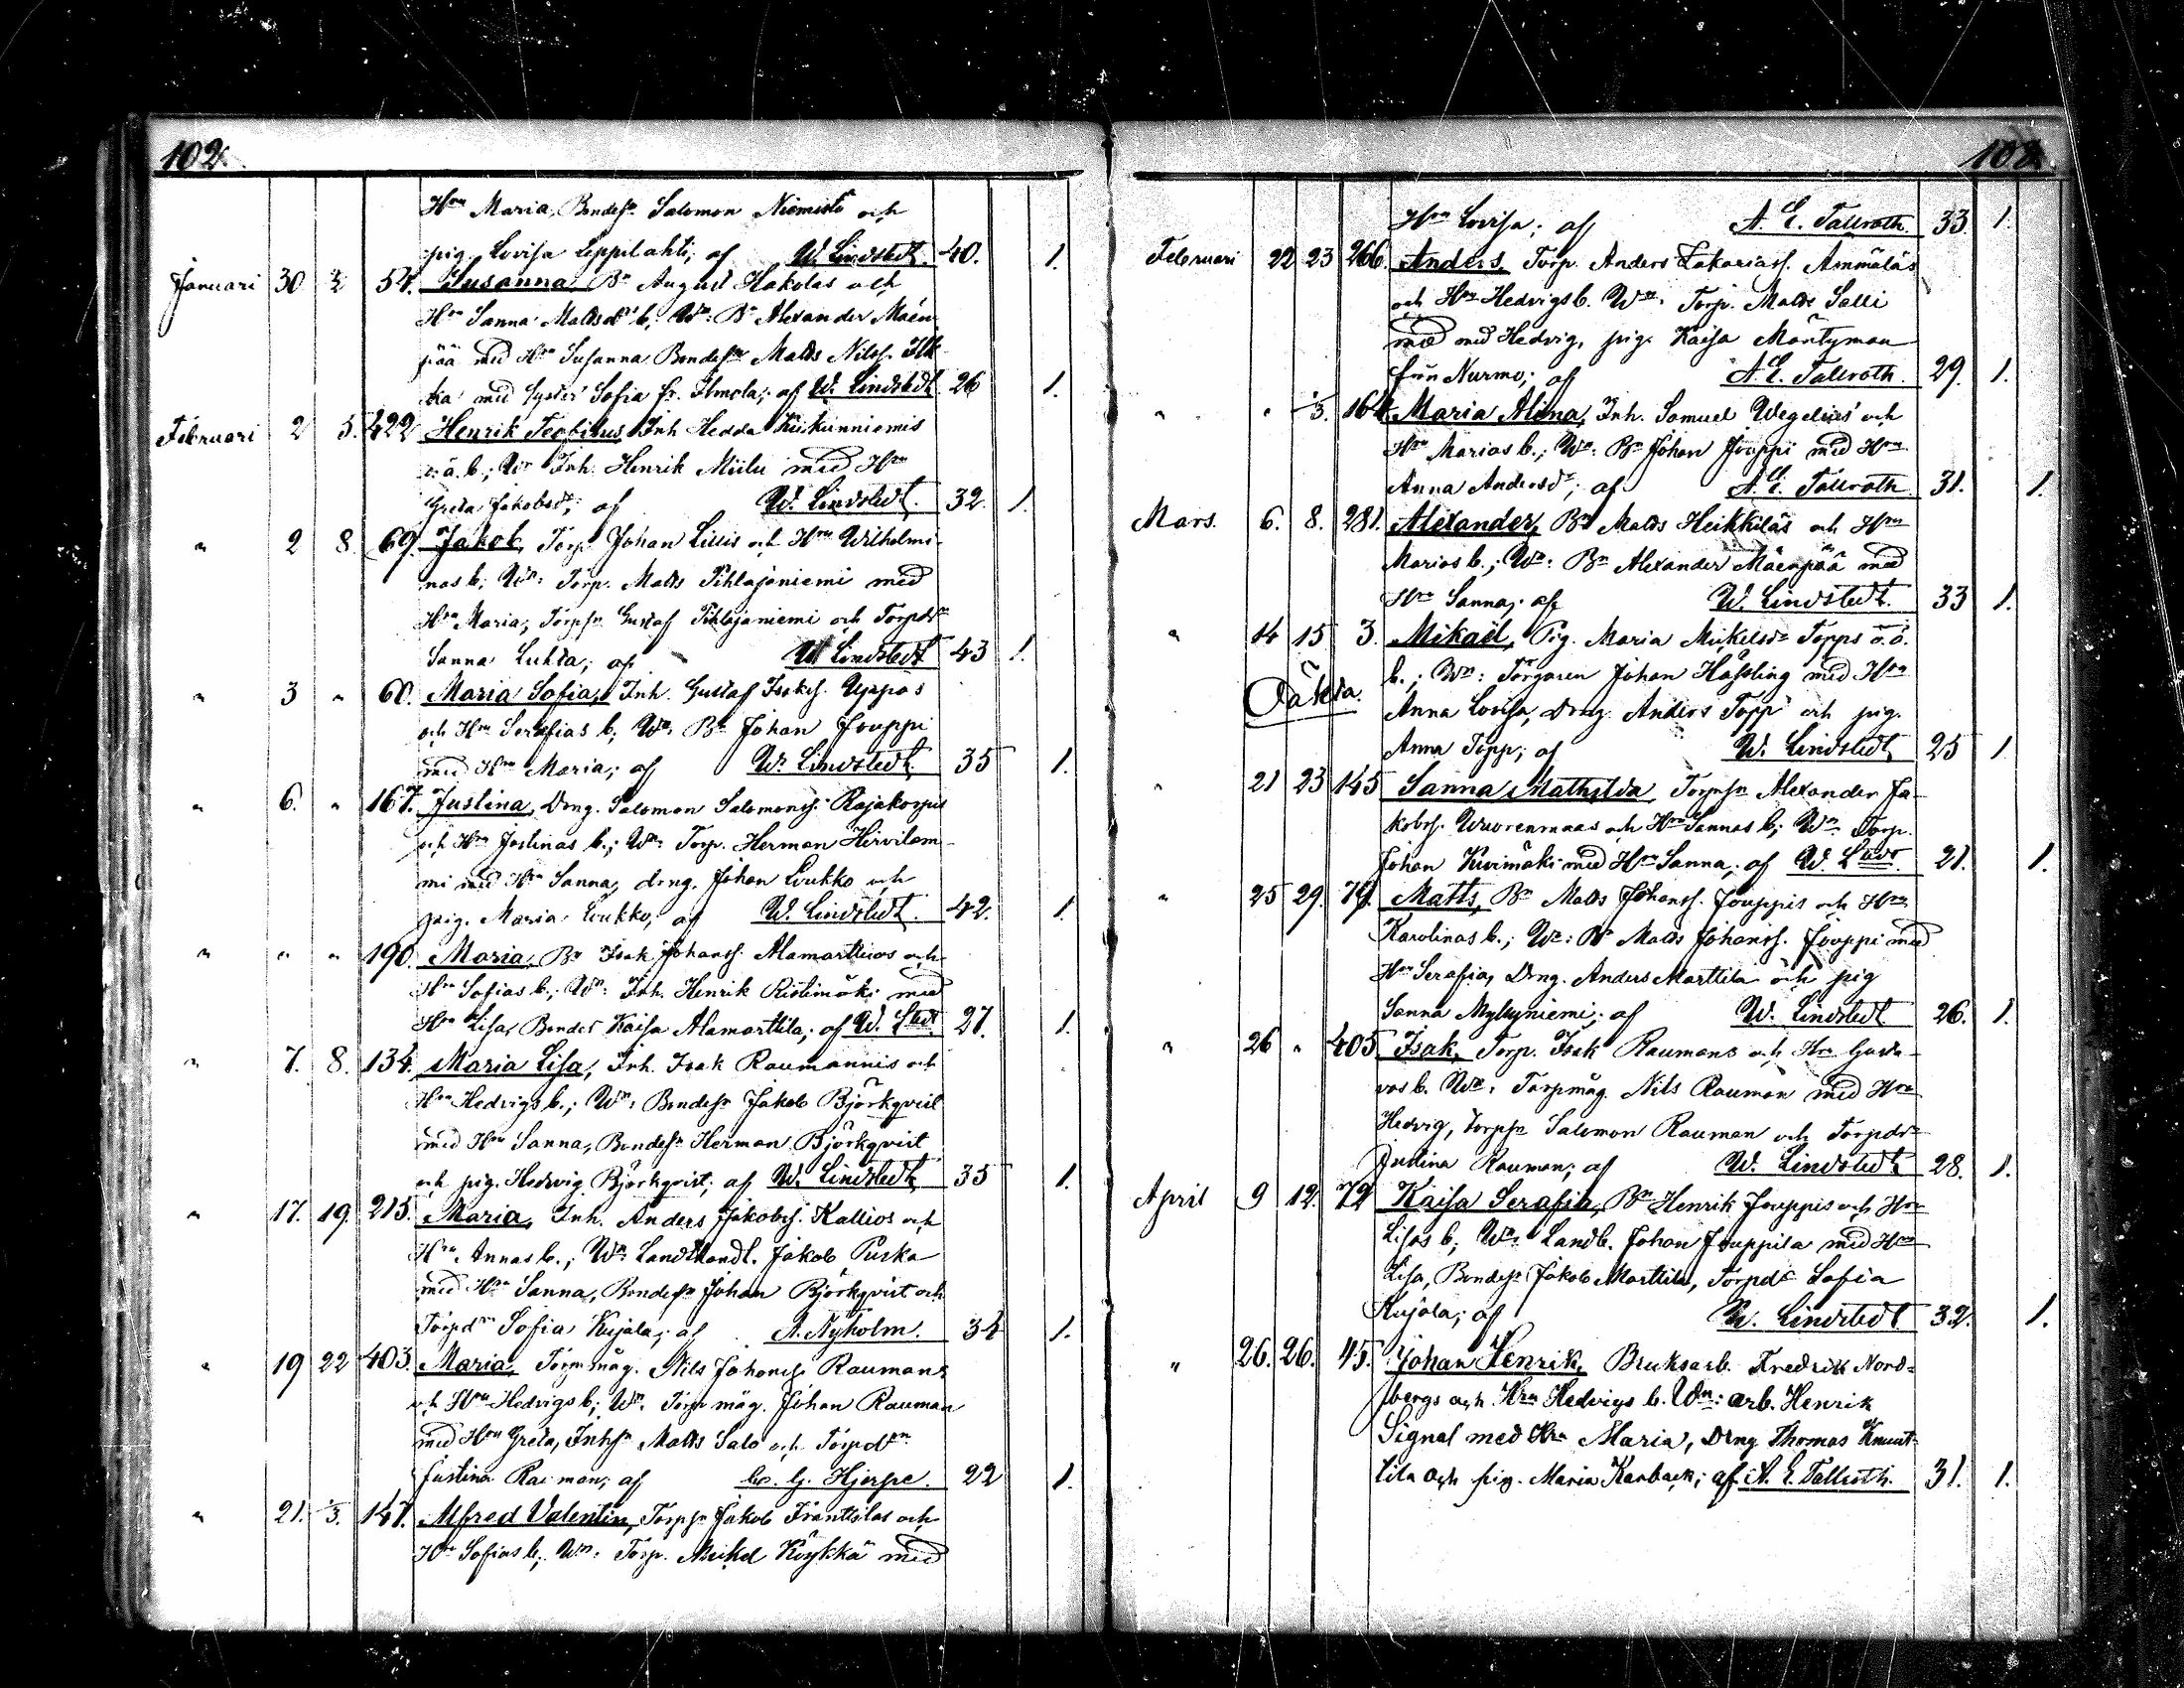 102.
Hru Maria, Bondesn Salomon Niemistö och
pig. Lovisa Leppilahti; af W. Lindstedt. 40. 1.
Januari 30 54. Susanna, Bn August Hakolas och
Hru Sanna Mattsdrs b; Wn: Bn Alexander Mäen
pää med Hru Susanna Bondesn Matts Nilss. Ilk
ka med syster Sofia fr. Ilmola; af W. Lindstedt. 26 1.
Februari 2 5. 422 Henrik Teofilus Inh. Hedda Kiikunniemis
o.ä.b.; Wn Inh. Henrik Miilu med Hru
Greta Jakobsdr; af W. Lindstedt. 32. 1.
" 2 8. 69. Jakob, Torp. Johan Lillis och Hru Wilhelmi-
nas b; Wn: Torp. Matts Pihlajaniemi med
Hru Maria, Torpsn Gustaf Pihlajaniemi och Torpdr
Sanna Luhta; af W Lindstedt 43 1.
" 3 " 60. Maria Sofia, Inh. Gustaf Isaks. Uppas
och Hru Serafias b; Wn: Bn Johan Jouppi
med Hru Maria; af W. Lindstedt. 35 1.
" 6. " 167. Justina, Dräng. Salomon Salomonss. Rajakorpis
och Hru Justinas b.; Wn: Torp. Herman Hirvilam-
mi med Hru Sanna, dräng. Johan Loukko och
pig. Maria Loukko; af W. Lindstedt. 42. 1.
" " " 190. Maria, Bn Isak Johanss. Alamarttilas och
Hru Sofias b.; Wn: Inh. Henrik Ristimäki med
Hru Lisa, Bondedr Kaisa Alamarttila; af W. Lstedt. 27. 1.
" 7. 8. 134. Maria Lisa, Inh. Isak Raumannis och
Hru Hedvigs b.; Wn: Bondesn Jakob Björkqvist
med Hru Sanna, Bondesn Herman Björkqvist
och pig. Hedvig Björkqvist; af W. Lindstedt 35 1.
" 17. 19. 215. Maria, Inh. Anders Jakobss. Kallios och
Hru Annas b.; Wn: Landthandl. Jakob Puska
med Hru Sanna, Bondesn Johan Björkqvist och
Torpdrn Sofia Kujala; af A. Nyholm. 34 1.
" 19 22 403. Maria, Torpmåg. Nils Johanss. Raumans
och Hru Hedvigs b; Wn: Torpmåg. Johan Rauman
med Hru Greta, Inhsn Matts Salo och Torpdrn
Justina Rauman; af C. G. Hjerpe. 22 1.
" 21. 3. 147. Alfred Valentin, Torpsn Jakob Franttilas och
Hru Sofias b; Wn: Torp. Mickel Köykkä med
102.
Hru Lovisa; af A. E. Tallroth. 33. 1.
Februari 22 23 266. Anders, Torp. Anders Zakariass. Ammälas
och Hru Hedvigs b. Wn: Torp. Matts Salli
med med Hedvig, pig. Kaisa Mäntyman
från Nurmo; af A. E. Tallroth. 29. 1.
" " 3. 164 Maria Alina, Inh. Samuel Wegelius' och
Hru Marias b.; Wn: Bn Johan Jouppi med Hru
Anna Andersdr; af A. E. Tallroth 31. 1.
Mars. 6. 8. 281. Alexander, Bn Matts Heikkiläs och Hru
Marias b.; Wn: Bn Alexander Mäenpää med
Hru Sanna; af W. Lindstedt. 33 1.
" 14 15 3. Mikael, Pig. Maria Mickelsdr Topps o.ä.
Oäkta.
b.; Wn: Torparen Johan Hassling med Hru
Anna Lovisa, Dräng. Anders Topp och pig.
Anna Topp; af W. Lindstedt 25 1.
" 21 23 145 Sanna Mathilda, Torpsn Alexander Ja-
kobss. Wuorenmaas och Hru Sannas b; Wn Torp.
Johan Kivimäki med Hru Sanna; af W. Lstedt. 21. 1.
" 25 29. 79. Matts, Bn Matts Johanss. Jouppis och Hru
Karolinas b.; Wn: Bn Matts Johanss. Jouppi med
Hru Serafia, Dräng. Anders Marttila och pig
Sanna Myllyniemi; af W. Lindstedt 26. 1.
" 26 " 405 Isak, Torp. Isak Raumans och Hru Gusta-
vas b. Wn: Torpmåg. Nils Rauman med Hru
Hedvig, Torpsn Salomon Rauman och Torpdrn
Justina Rauman; af W. Lindstedt 28. 1.
April 9 12. 72 Kaisa Serafia, Bn Henrik Jouppis och Hru
Lisas b; Wn: Landb. Johan Jouppila med Hru
Lisa, Bondesn Jakob Marttila, Torpdr Sofia
Kujala; af W. Lindstedt 32. 1.
" 26. 26. 45. Johan Henrik, Bruksarb. Fredrik Nord-
bergs och Hru Hedvigs b. Wn: arb. Henrik
Signal med Hru Maria, Dräng Thomas Knuut-
tila och pig. Maria Karback; af A. E. Tallroth. 31. 1.